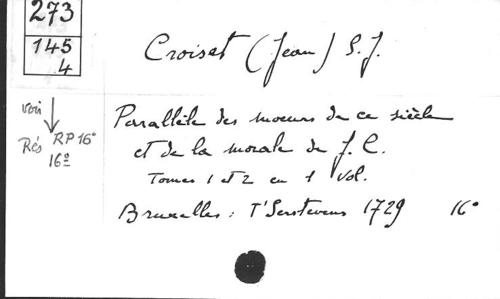 273
145
4
voir
Rés RP 16°
16º
Croiset (Jean) S.J.
Parallèle des moeurs de ce siècle
et de la morale de J. C.
Tomes 1 et 2 en 1 vol.
Bruxelles : T'Serstevens 1729 16°